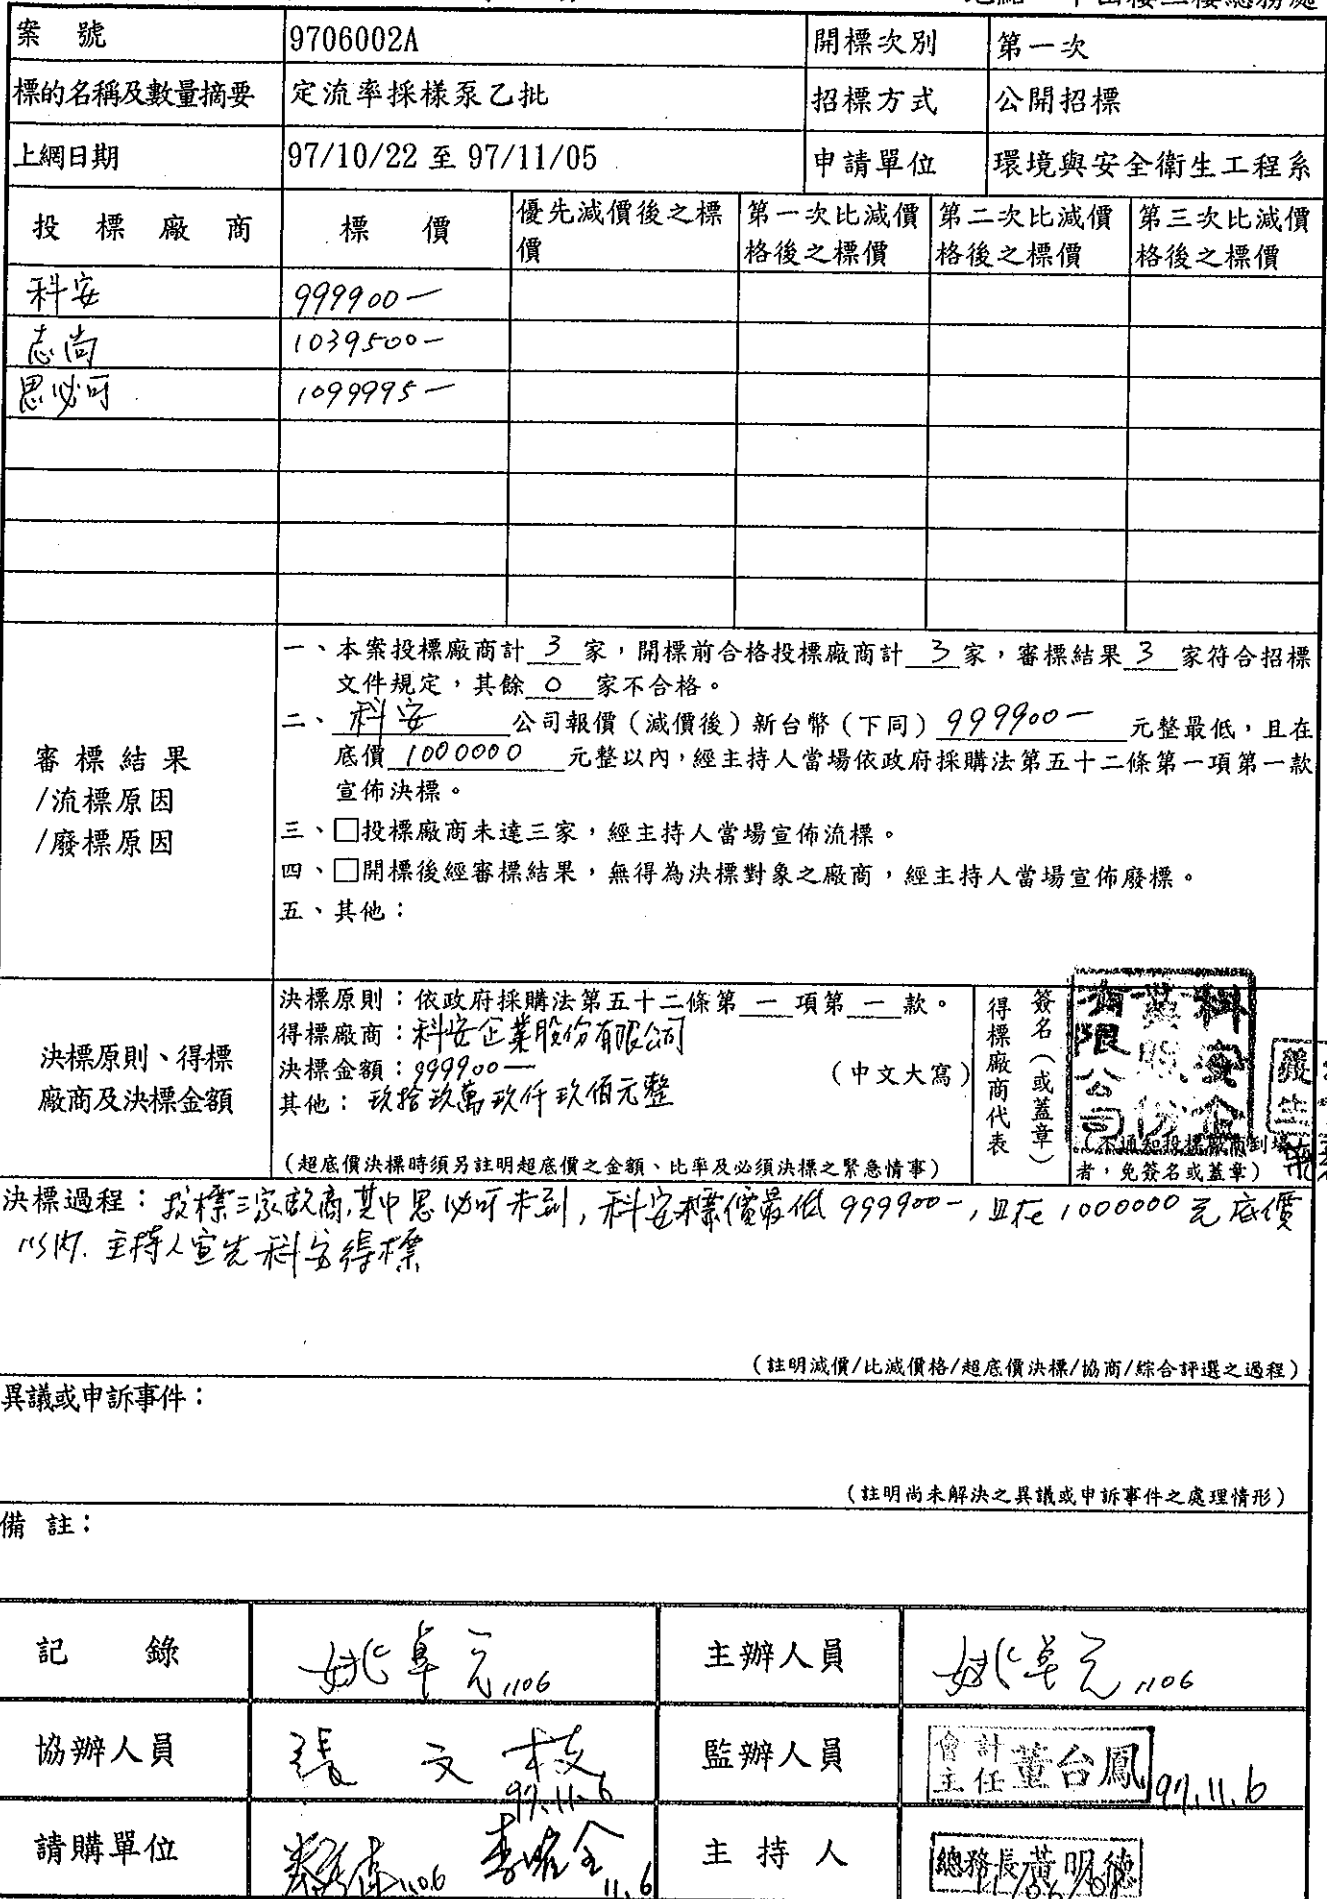 案 號 9706002A 開標次別 第一次
標的名稱及數量摘要 定流率採樣泵乙批 招標方式 公開招標
上網日期 97/10/22 至 97/11/05 申請單位 環境與安全衛生工程系
投 標 廠 商 標 價 優先減價後之標價 第一次比減價格後之標價 第二次比減價格後之標價 第三次比減價格後之標價
科安 999900—
志尚 1039500—
思必可 1099995—
審標結果
/流標原因
/廢標原因
一、本案投標廠商計 3 家，開標前合格投標廠商計 3 家，審標結果 3 家符合招標
文件規定，其餘 0 家不合格。
二、 科安 公司報價（減價後）新台幣（下同） 999900— 元整最低，且在
底價 1000000 元整以內，經主持人當場依政府採購法第五十二條第一項第一款
宣佈決標。
三、□投標廠商未達三家，經主持人當場宣佈流標。
四、□開標後經審標結果，無得為決標對象之廠商，經主持人當場宣佈廢標。
五、其他：
決標原則、得標
廠商及決標金額
決標原則：依政府採購法第五十二條第 一 項第 一 款。
得標廠商：科安企業股份有限公司
決標金額：999900— （中文大寫）
其他： 玖拾玖萬玖仟玖佰元整
（超底價決標時須另註明超底價之金額、比率及必須決標之緊急情事）
得標廠商代表
簽名（或蓋章）
科安企
業股份
有限公司
（不通知投標廠商到場
者，免簽名或蓋章）
決標過程：投標三家廠商,其中思必可未到，科安標價最低 999900-，且在 1000000 元底價
以內. 主持人宣佈科安得標
（註明減價/比減價格/超底價決標/協商/綜合評選之過程）
異議或申訴事件：
（註明尚未解決之異議或申訴事件之處理情形）
備 註：
記 錄 姚卓元 1106 主辦人員 姚卓元 1106
協辦人員 張文枝 97.11.6 監辦人員 會計主任董台鳳 97.11.6
請購單位 1106 11.6 主 持 人 總務長黃明德